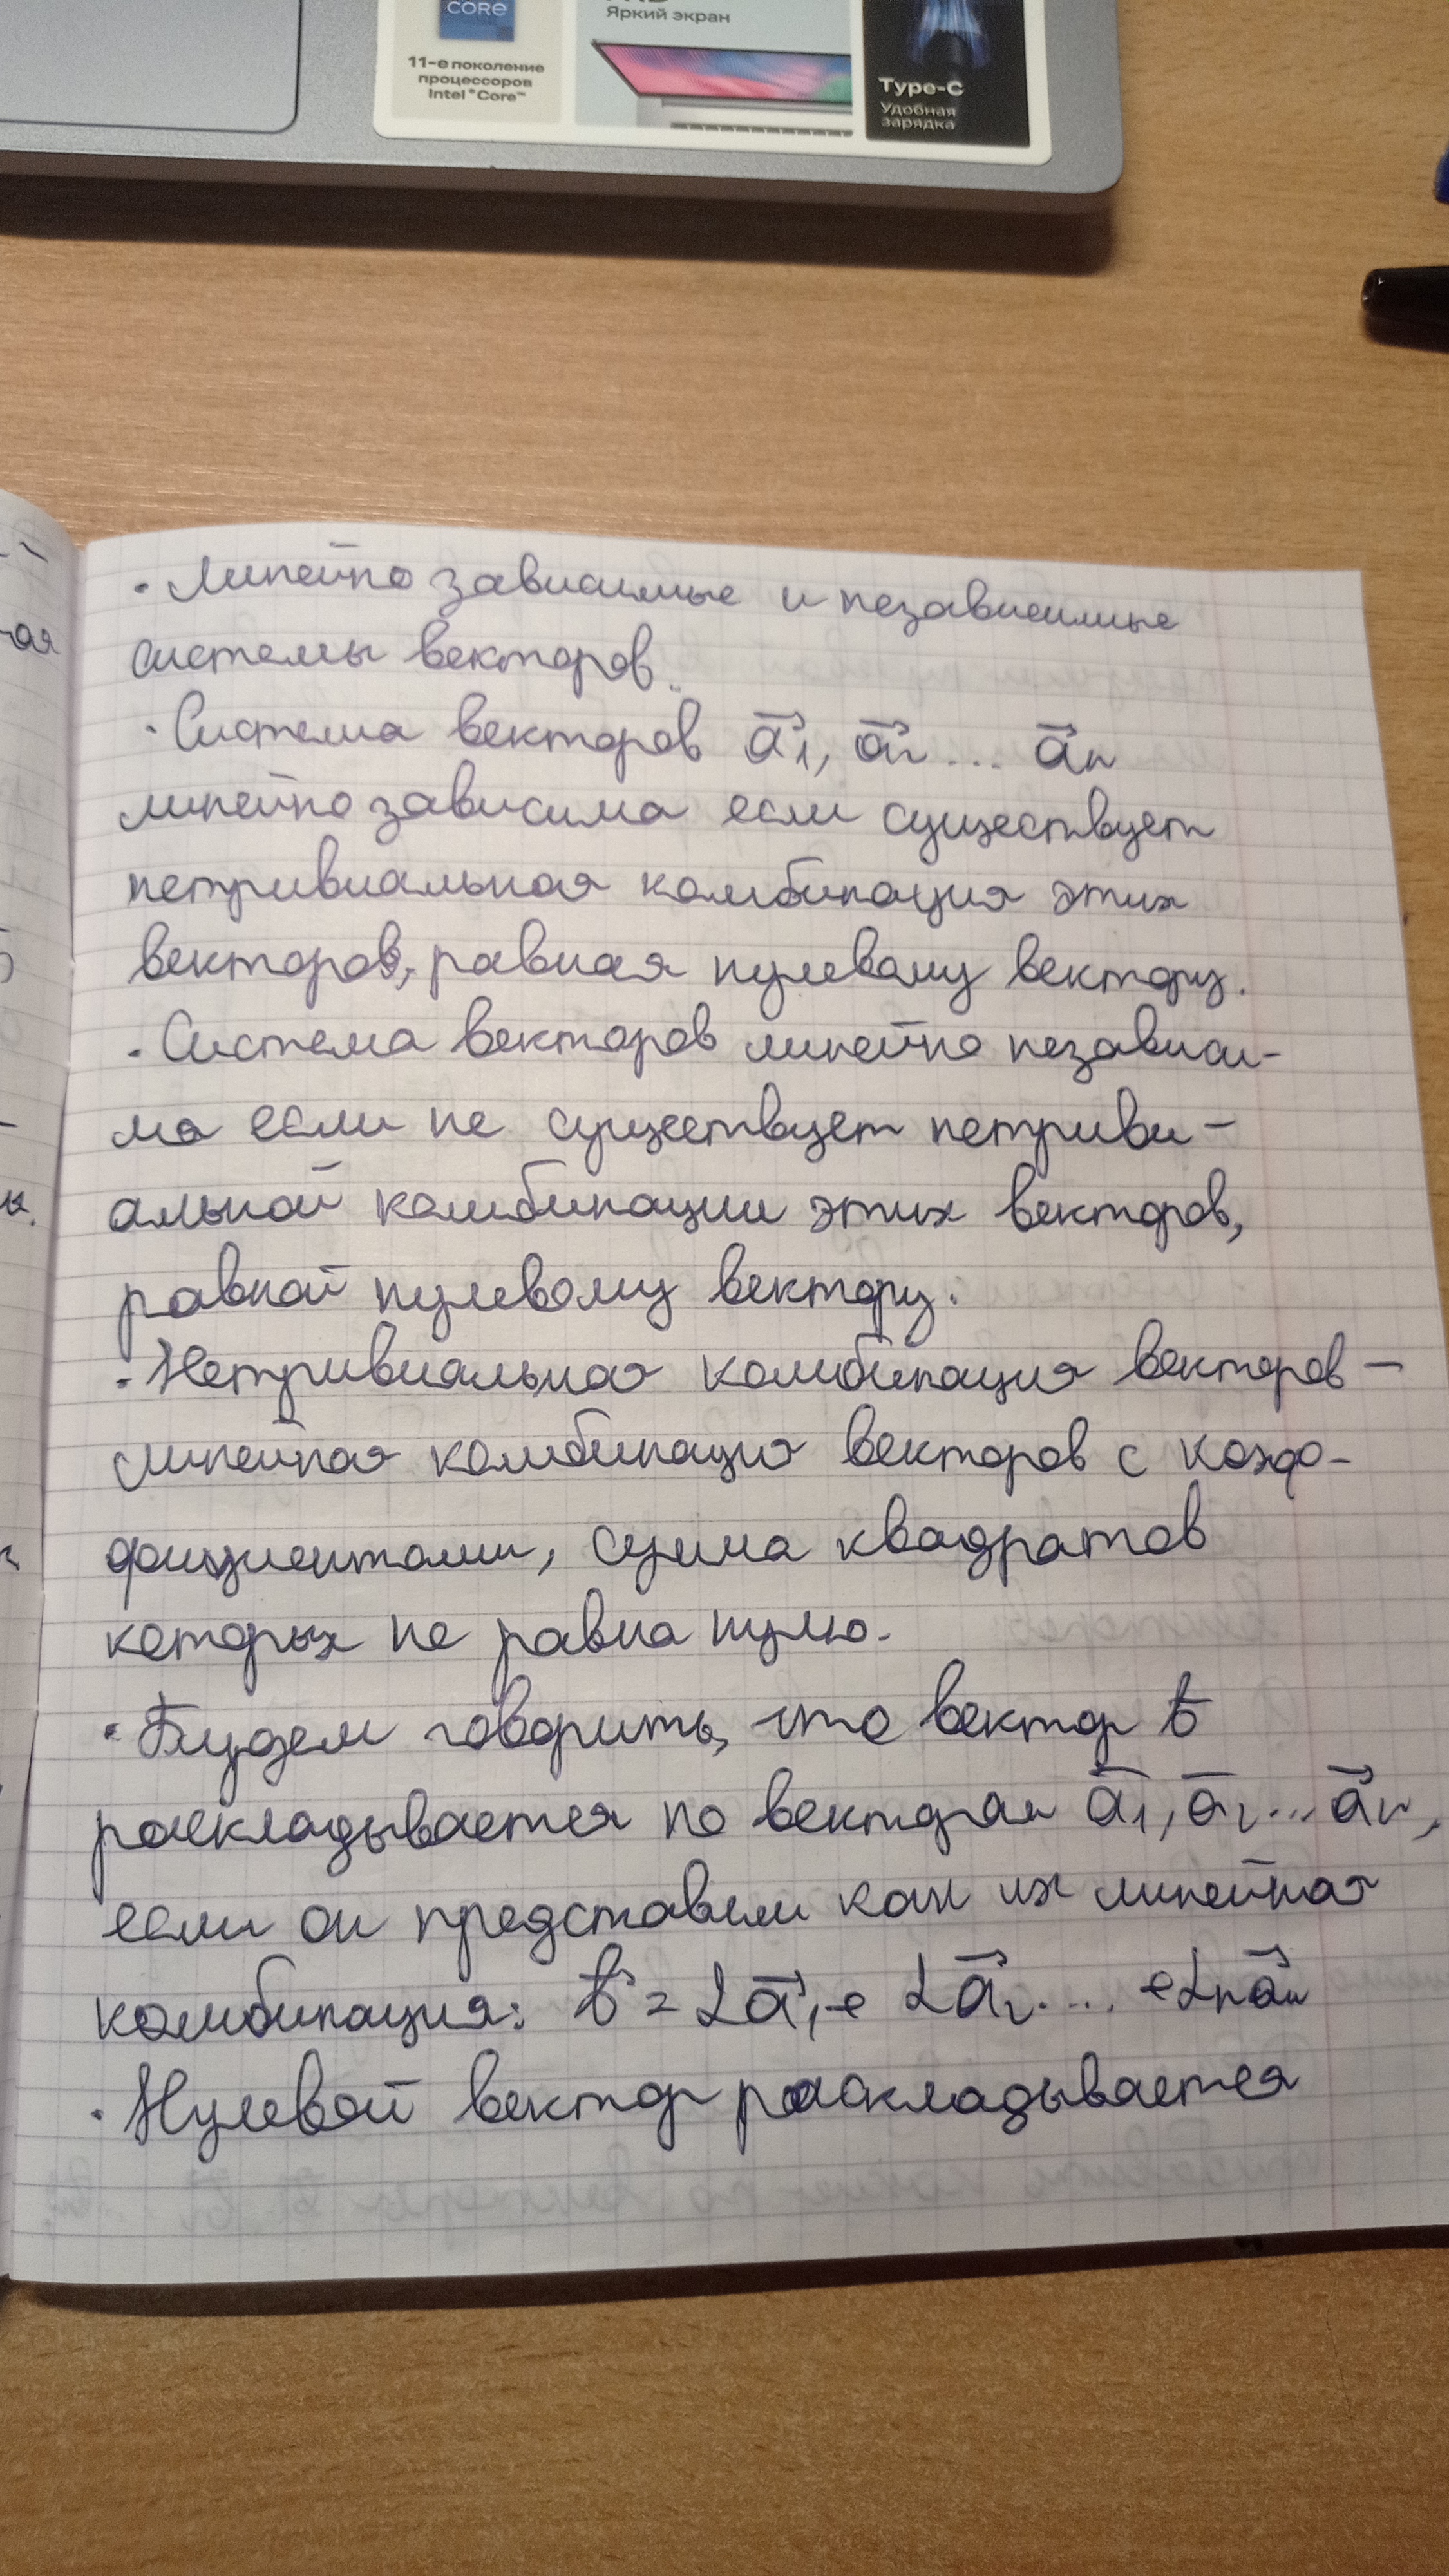 CORE
11-е поколение
процессоров
Intel® Core™
Яркий экран
Type-C
Удобная
зарядка
ая
• Линейно зависимые и независимые
системы векторов.
• Система векторов a⃗1, a⃗2 ... a⃗n
линейно зависима если существует
нетривиальная комбинация этих
векторов, равная нулевому вектору.
• Система векторов линейно независи-
ма если не существует нетриви-
альной комбинации этих векторов,
равной нулевому вектору.
• Нетривиальная комбинация векторов –
линейная комбинация векторов с коэф-
фициентами, сумма квадратов
которых не равна нулю.
• Будем говорить, что вектор b
раскладывается по векторам a⃗1, a⃗2 ... a⃗n,
если он представим как их линейная
комбинация: b⃗ = αa⃗1 + αa⃗2 ... + αna⃗n
• Нулевой вектор раскладывается